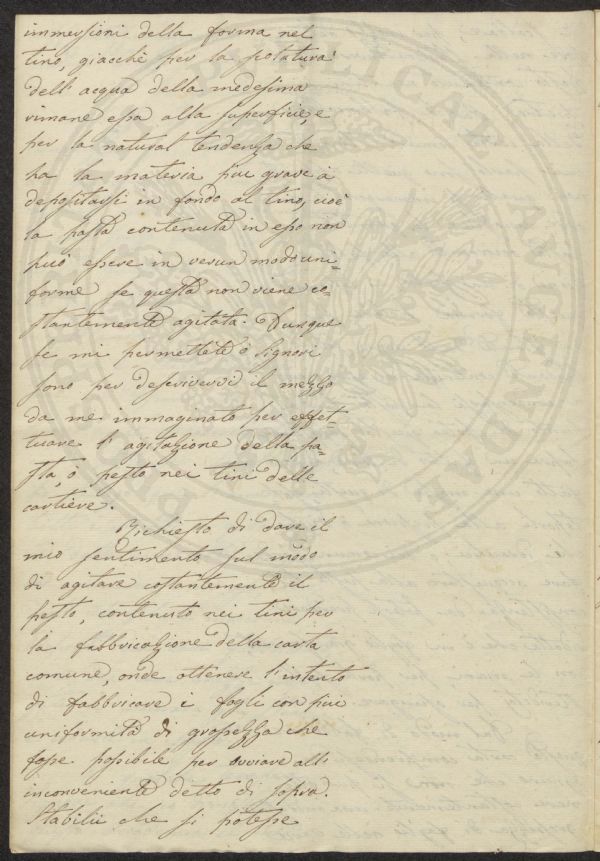 immersioni della forma nel
tino, giacchè per la scolatura
dell' acqua della medesima
rimane essa alla superficie, e
per la natural tendenza che
ha la materia piu grave a
depositarsi in fondo al tino, cioè
la pasta contenuta in esso non
può essere in verun modo uni-
forme se questa non viene co-
stantemente agitata. Dunque
se mi permettete ò Signori
sono per descrivervi il mezzo
da me immaginato per effet-
tuare l' agitazione della pa-
sta, ò pesto nei tini delle
cartiere.
Richiesto di dare il
mio sentimento sul modo
di agitare costantemente il
pesto, contenuto nei tini per
la fabbricazione della carta
comune, onde ottenere l' intento
di fabbricare i fogli con piu
uniformità di grossezza che
fosse possibile per ovviare all'
inconveniente detto di sopra.
Stabilii che si potesse